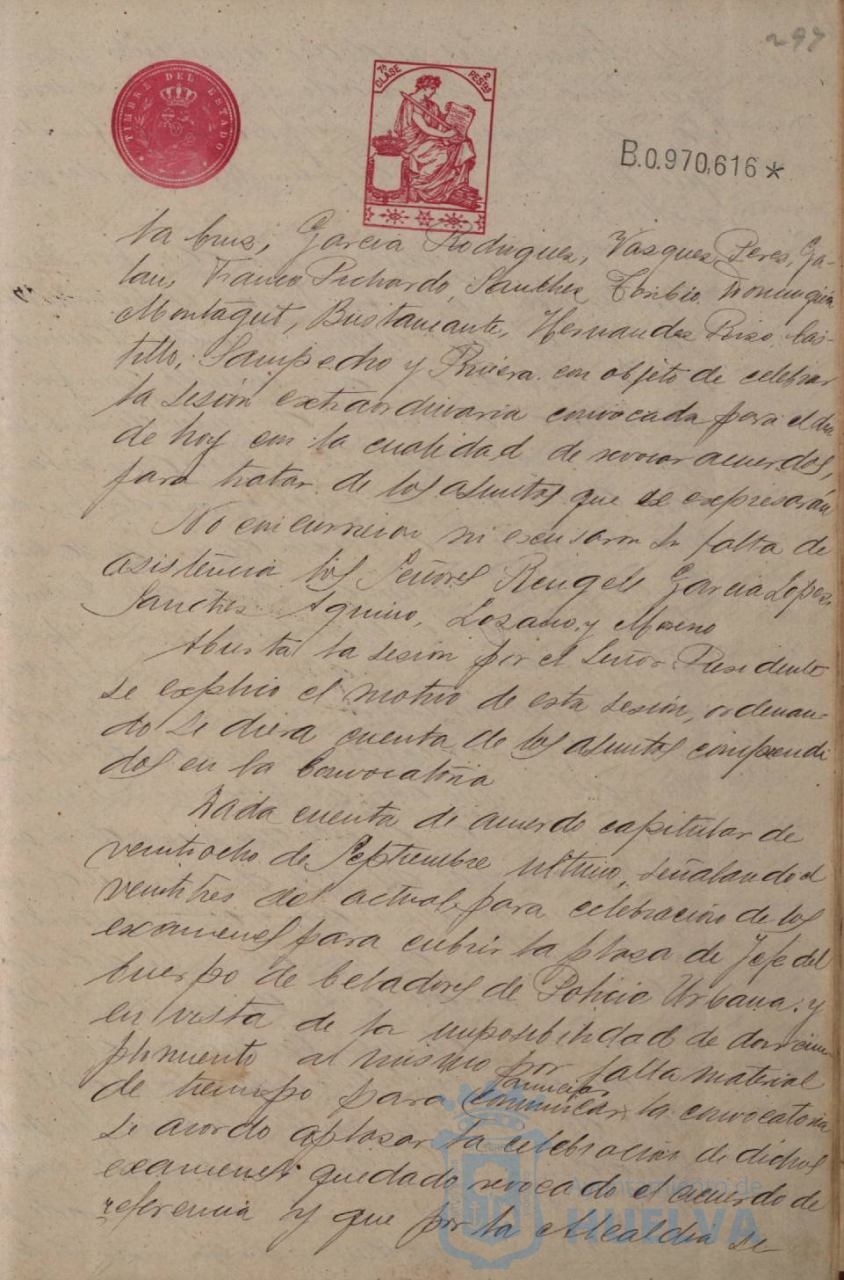 297
TIMBRE DEL ESTADO
7ª CLASE 2 PESTAS
B.0.970,616*
la Cruz, Garcia Rodriguez, Vazquez Perez, Ga-
lan, Franco Pichardo, Sanchez Toribio, Dominguez
Montagut, Bustamante, Hernandez Pozo, Cas-
tillo, Sampedro y Rivera con objeto de celebrar
la sesión extraordinaria convocada para el dia
de hoy con la cualidad de revocar acuerdos,
para tratar de los asuntos que se expresarán
No concurrieron ni excusaron su falta de
asistencia los Señores Rengel, Garcia Lopez,
Sanchez Aquino, Lozano, y Moreno
Abierta la sesion por el Señor Presidente
se explico el motivo de esta sesión, ordenan-
do se diera cuenta de los asuntos comprendi
dos en la Convocatoria
Dada cuenta de acuerdo capitular de
veintiocho de Septiembre ultimo, señalando el
veintitres del actual para celebración de los
examenes para cubrir la plaza de Jefe del
Cuerpo de Celadores de Policia Urbana; y
en vista de la imposibilidad de dar cum-
plimiento al mismo por falta material
anunciar
de tiempo para comunicar la convocatoria
se acordo aplazar la celebración de dichos
examenes quedado revocado el acuerdo de
referencia y que por la Alcaldia se
Ayuntamiento de
HUELVA